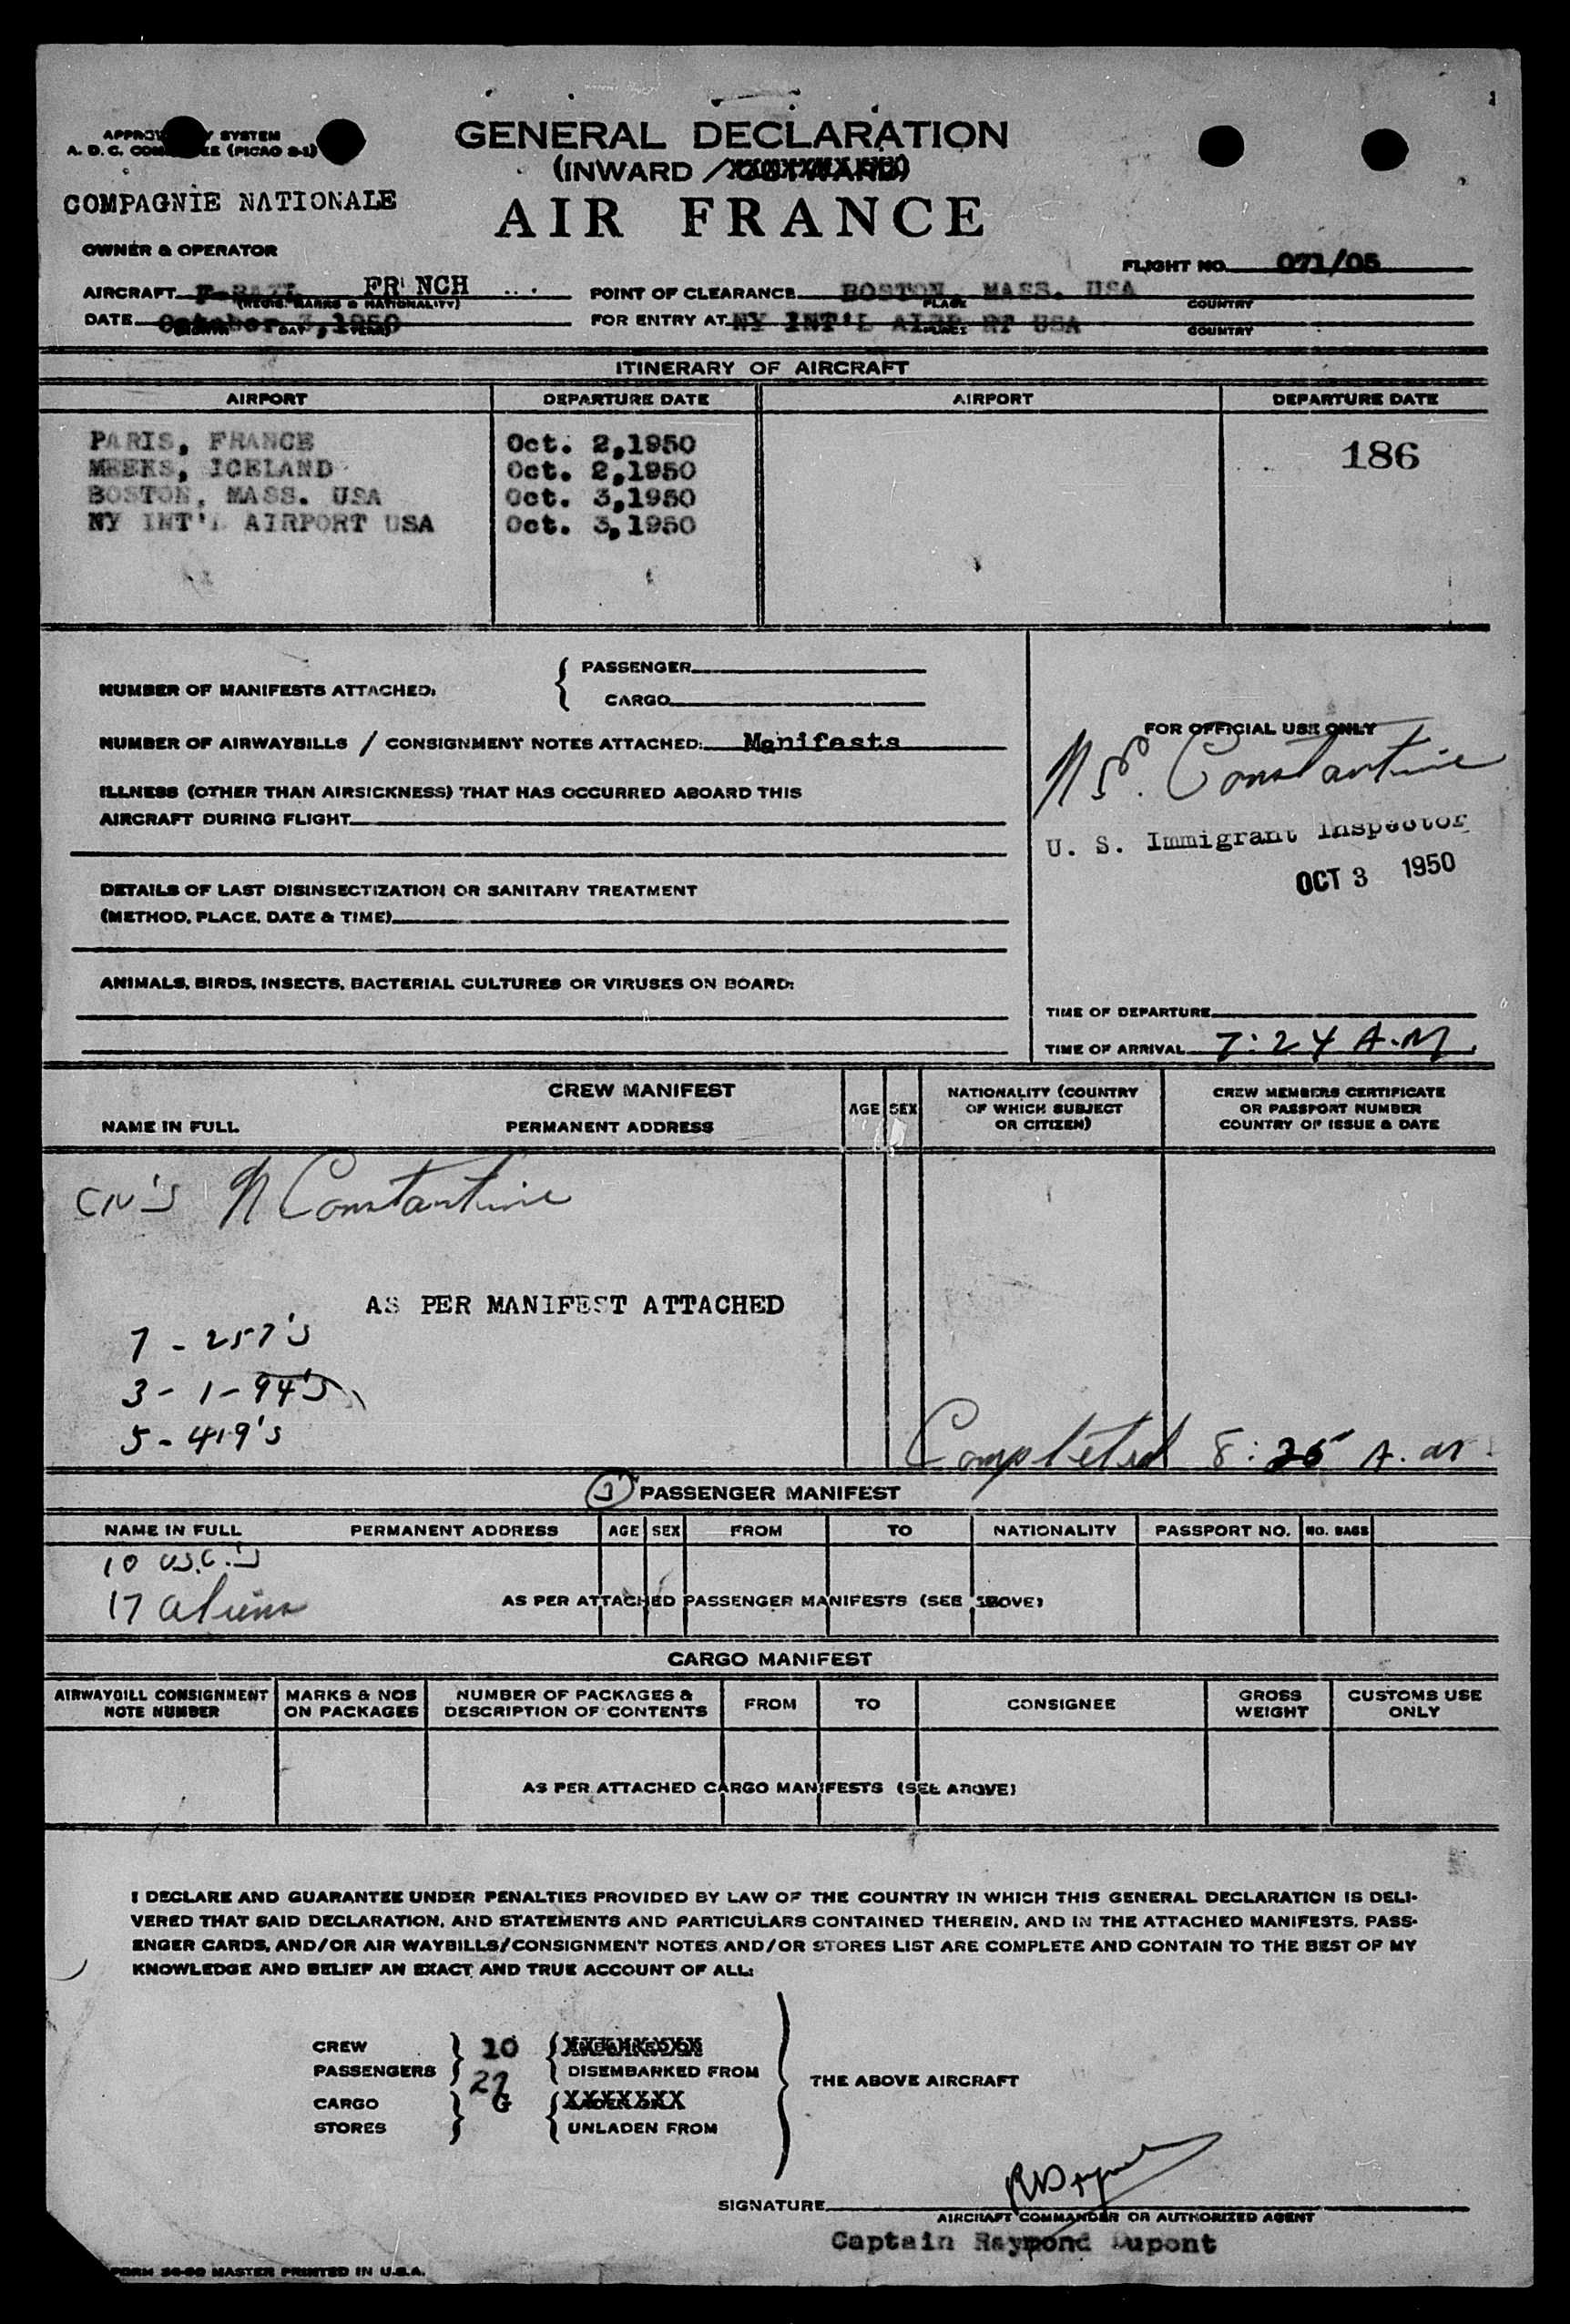 GENERAL DECLARATION
(INWARD /
SYSTEM
A. D. C. (PICAO 2-1)
COMPAGNIE NATIONALE
AIR FRANCE
OWNER & OPERATOR
FLIGHT NO. 071/05
AIRCRAFT FR NCH
(REGIS. MARKS & NATIONALITY)
POINT OF CLEARANCE BOSTON, MASS. USA
PLACE COUNTRY
DATE October 3, 1950
FOR ENTRY AT NY INT'L AIRP RT USA
COUNTRY
ITINERARY OF AIRCRAFT
AIRPORT DEPARTURE DATE AIRPORT DEPARTURE DATE
PARIS, FRANCE Oct. 2,1950 186
MEEKS, ICELAND Oct. 2,1950
BOSTON, MASS. USA Oct. 3,1950
NY INT'L AIRPORT USA Oct. 3,1950
NUMBER OF MANIFESTS ATTACHED: { PASSENGER
CARGO
NUMBER OF AIRWAYBILLS / CONSIGNMENT NOTES ATTACHED: Manifests
ILLNESS (OTHER THAN AIRSICKNESS) THAT HAS OCCURRED ABOARD THIS
AIRCRAFT DURING FLIGHT
DETAILS OF LAST DISINSECTIZATION OR SANITARY TREATMENT
(METHOD, PLACE, DATE & TIME)
ANIMALS, BIRDS, INSECTS, BACTERIAL CULTURES OR VIRUSES ON BOARD:
FOR OFFICIAL USE ONLY
Constantine
U. S. Immigrant Inspector
OCT 3 1950
TIME OF DEPARTURE
TIME OF ARRIVAL 7:24 A.M.
CREW MANIFEST
NAME IN FULL PERMANENT ADDRESS AGE SEX
NATIONALITY (COUNTRY
OF WHICH SUBJECT
OR CITIZEN)
CREW MEMBERS CERTIFICATE
OR PASSPORT NUMBER
COUNTRY OF ISSUE & DATE
N Constantine
AS PER MANIFEST ATTACHED
7 - 257's
3 - 1 - 94's
5 - 419's
Completed 8:25 A.M
PASSENGER MANIFEST
NAME IN FULL PERMANENT ADDRESS AGE SEX FROM TO NATIONALITY PASSPORT NO. NO. BAGS
10 U.S.C.'s
17 aliens
AS PER ATTACHED PASSENGER MANIFESTS (SEE ABOVE)
CARGO MANIFEST
AIRWAYBILL CONSIGNMENT
NOTE NUMBER
MARKS & NOS
ON PACKAGES
NUMBER OF PACKAGES &
DESCRIPTION OF CONTENTS
FROM TO CONSIGNEE
GROSS
WEIGHT
CUSTOMS USE
ONLY
AS PER ATTACHED CARGO MANIFESTS (SEE ABOVE)
I DECLARE AND GUARANTEE UNDER PENALTIES PROVIDED BY LAW OF THE COUNTRY IN WHICH THIS GENERAL DECLARATION IS DELI-
VERED THAT SAID DECLARATION, AND STATEMENTS AND PARTICULARS CONTAINED THEREIN, AND IN THE ATTACHED MANIFESTS, PASS-
ENGER CARDS, AND/OR AIR WAYBILLS/CONSIGNMENT NOTES AND/OR STORES LIST ARE COMPLETE AND CONTAIN TO THE BEST OF MY
KNOWLEDGE AND BELIEF AN EXACT AND TRUE ACCOUNT OF ALL:
CREW } 10
PASSENGERS 27 DISEMBARKED FROM
THE ABOVE AIRCRAFT
CARGO } G XXXXXXX
STORES UNLADEN FROM
SIGNATURE
AIRCRAFT COMMANDER OR AUTHORIZED AGENT
Captain Raymond Dupont
MASTER PRINTED IN U.S.A.